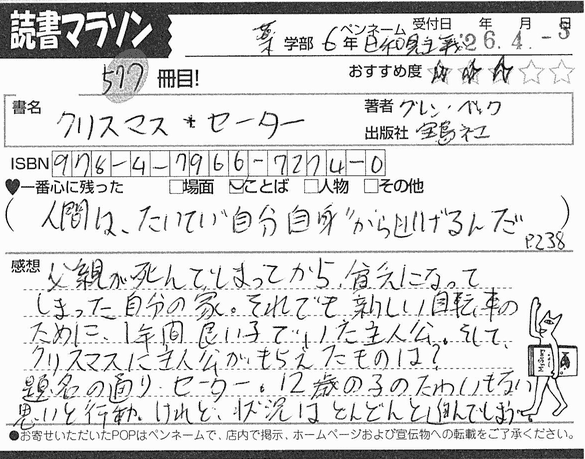 読書マラソン
薬学部 6年 ペンネーム 日和見主義 受付日 '26年 4月 -3日
577冊目!
おすすめ度 ★★★☆☆
書名
クリスマス * セーター
著者 グレン・ベック
出版社 宝島社
ISBN 978-4-7966-7274-0
♥一番心に残った □場面 ☑ことば □人物 □その他
(人間は、たいてい"自分自身"から逃げるんだ)
P238
感想
父親が死んでしまってから、貧乏になって
しまった自分の家。それでも新しい自転車の
ために、1年間良い子でいた主人公。そして、
クリスマスに主人公がもらえたものは?
題名の通り、セーター。12歳の子のたわいもない
思いと行動。けれど、状況はどんどんと進んでしまう。
●お寄せいただいたPOPはペンネームで、店内で掲示、ホームページおよび宣伝物への転載をご了承ください。